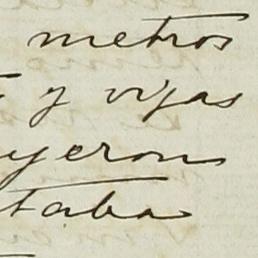 metros
y vijas
yeron
taba